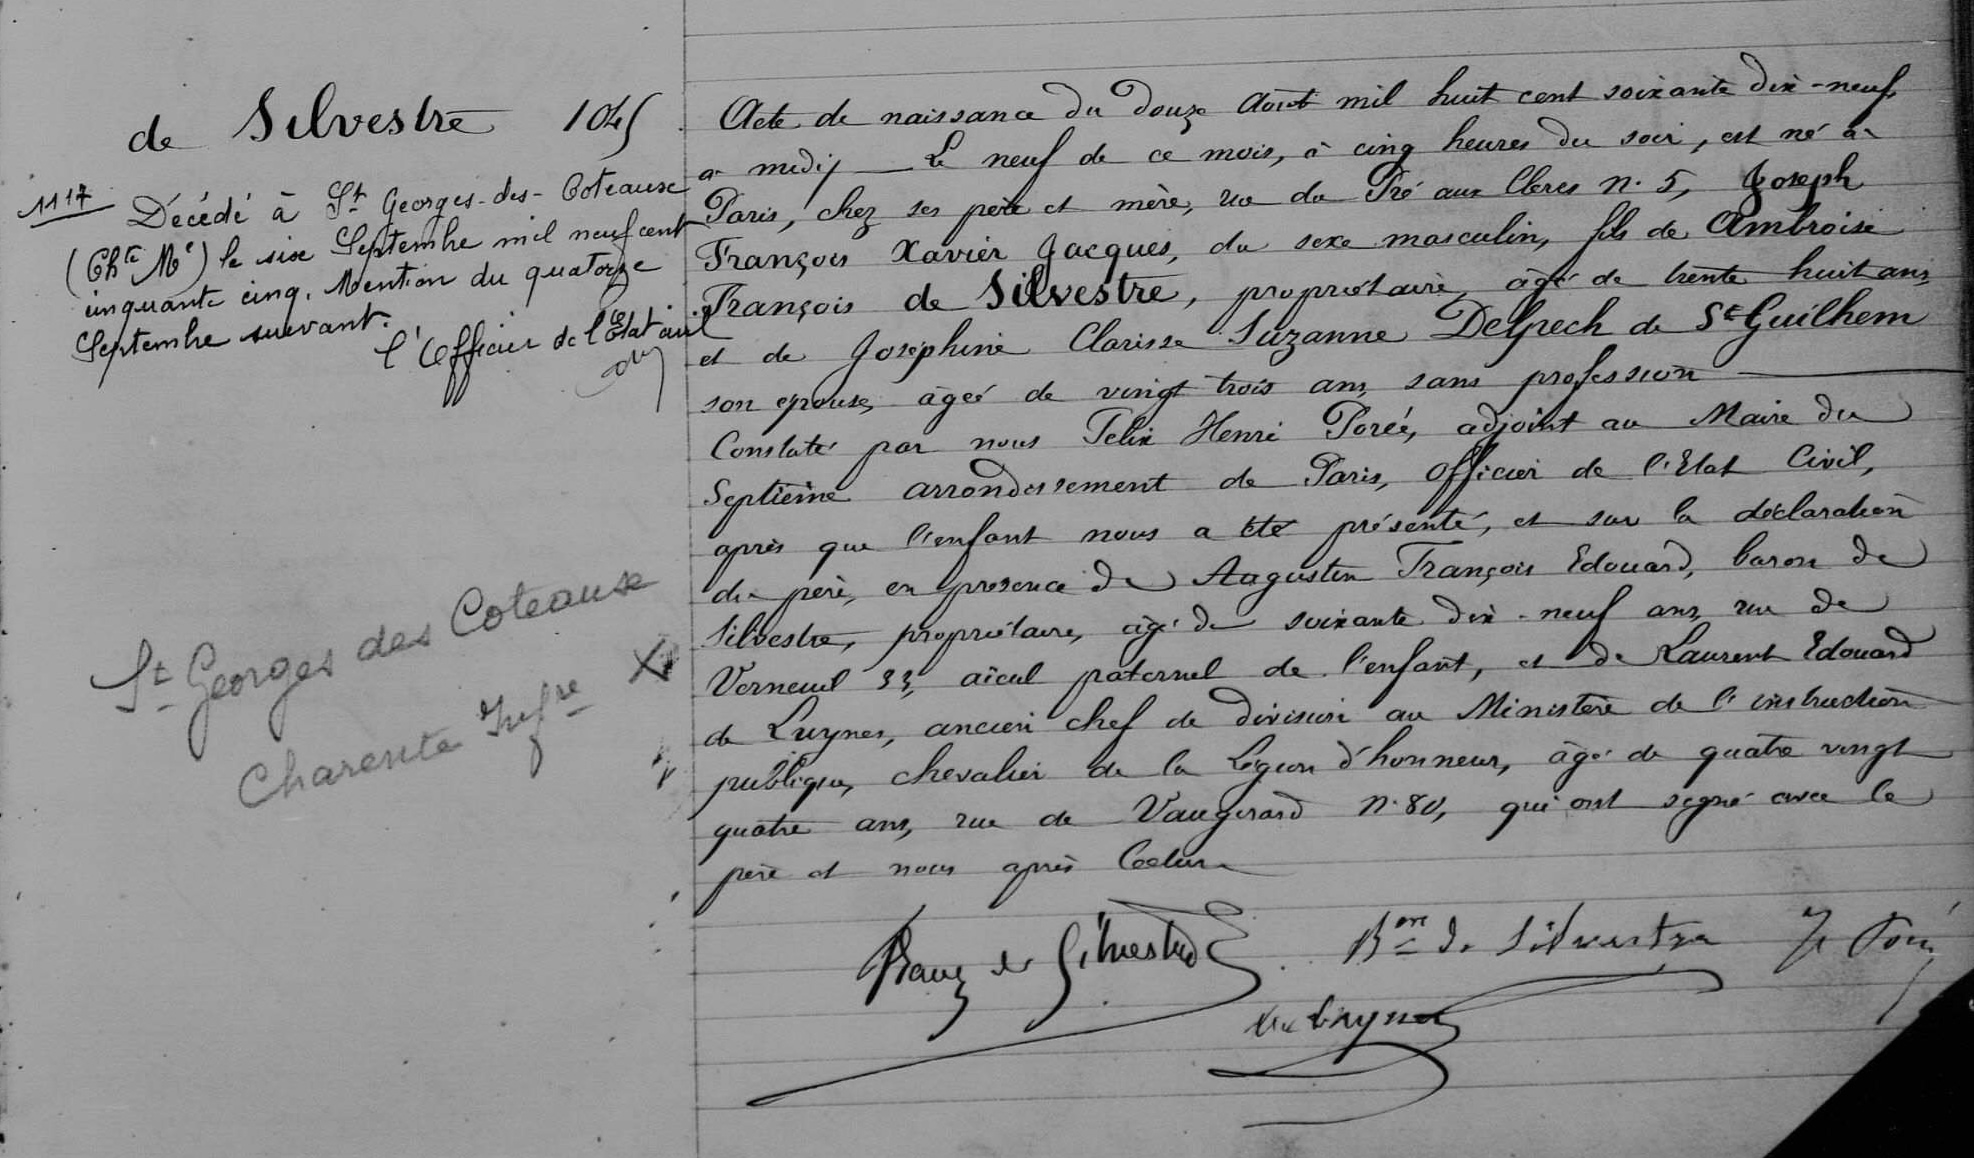 de Silvestre 1045
1117
Décédé à St Georges-des-Coteaux
(Chte Me) le six Septembre mil neuf cent
cinquante cinq. Mention du quatorze
Septembre suivant.
l'Officier de l'Etat civil
St Georges des Coteaux
Charente Infre
Acte de naissance du douze Août mil huit cent soixante dix-neuf,
à midi — Le neuf de ce mois, à cinq heures du soir, est né à
Paris, chez ses père et mère, rue du Pré aux Clercs n. 5, Joseph
François Xavier Jacques, du sexe masculin, fils de Ambroise
François de Silvestre, propriétaire, âgé de trente huit ans,
et de Joséphine Clarisse Suzanne Delpech de St Guilhem
son épouse, âgée de vingt trois ans, sans profession —
Constaté par nous Felix Henri Porée, adjoint au Maire du
Septième arrondissement de Paris, officier de l'Etat Civil,
après que l'enfant nous a été présenté, et sur la déclaration
du père, en présence de Augustin François Edouard, baron de
Silvestre, propriétaire, âgé de soixante dix-neuf ans, rue de
Verneuil 33, aïeul paternel de l'enfant, et de Laurent Edouard
de Luynes, ancien chef de division au Ministère de l'instruction
publique, chevalier de la Légion d'honneur, âgé de quatre vingt
quatre ans, rue de Vaugirard n. 80, qui ont signé avec le
père et nous après lecture
de Silvestre Bon de Silvestre
de Luynes